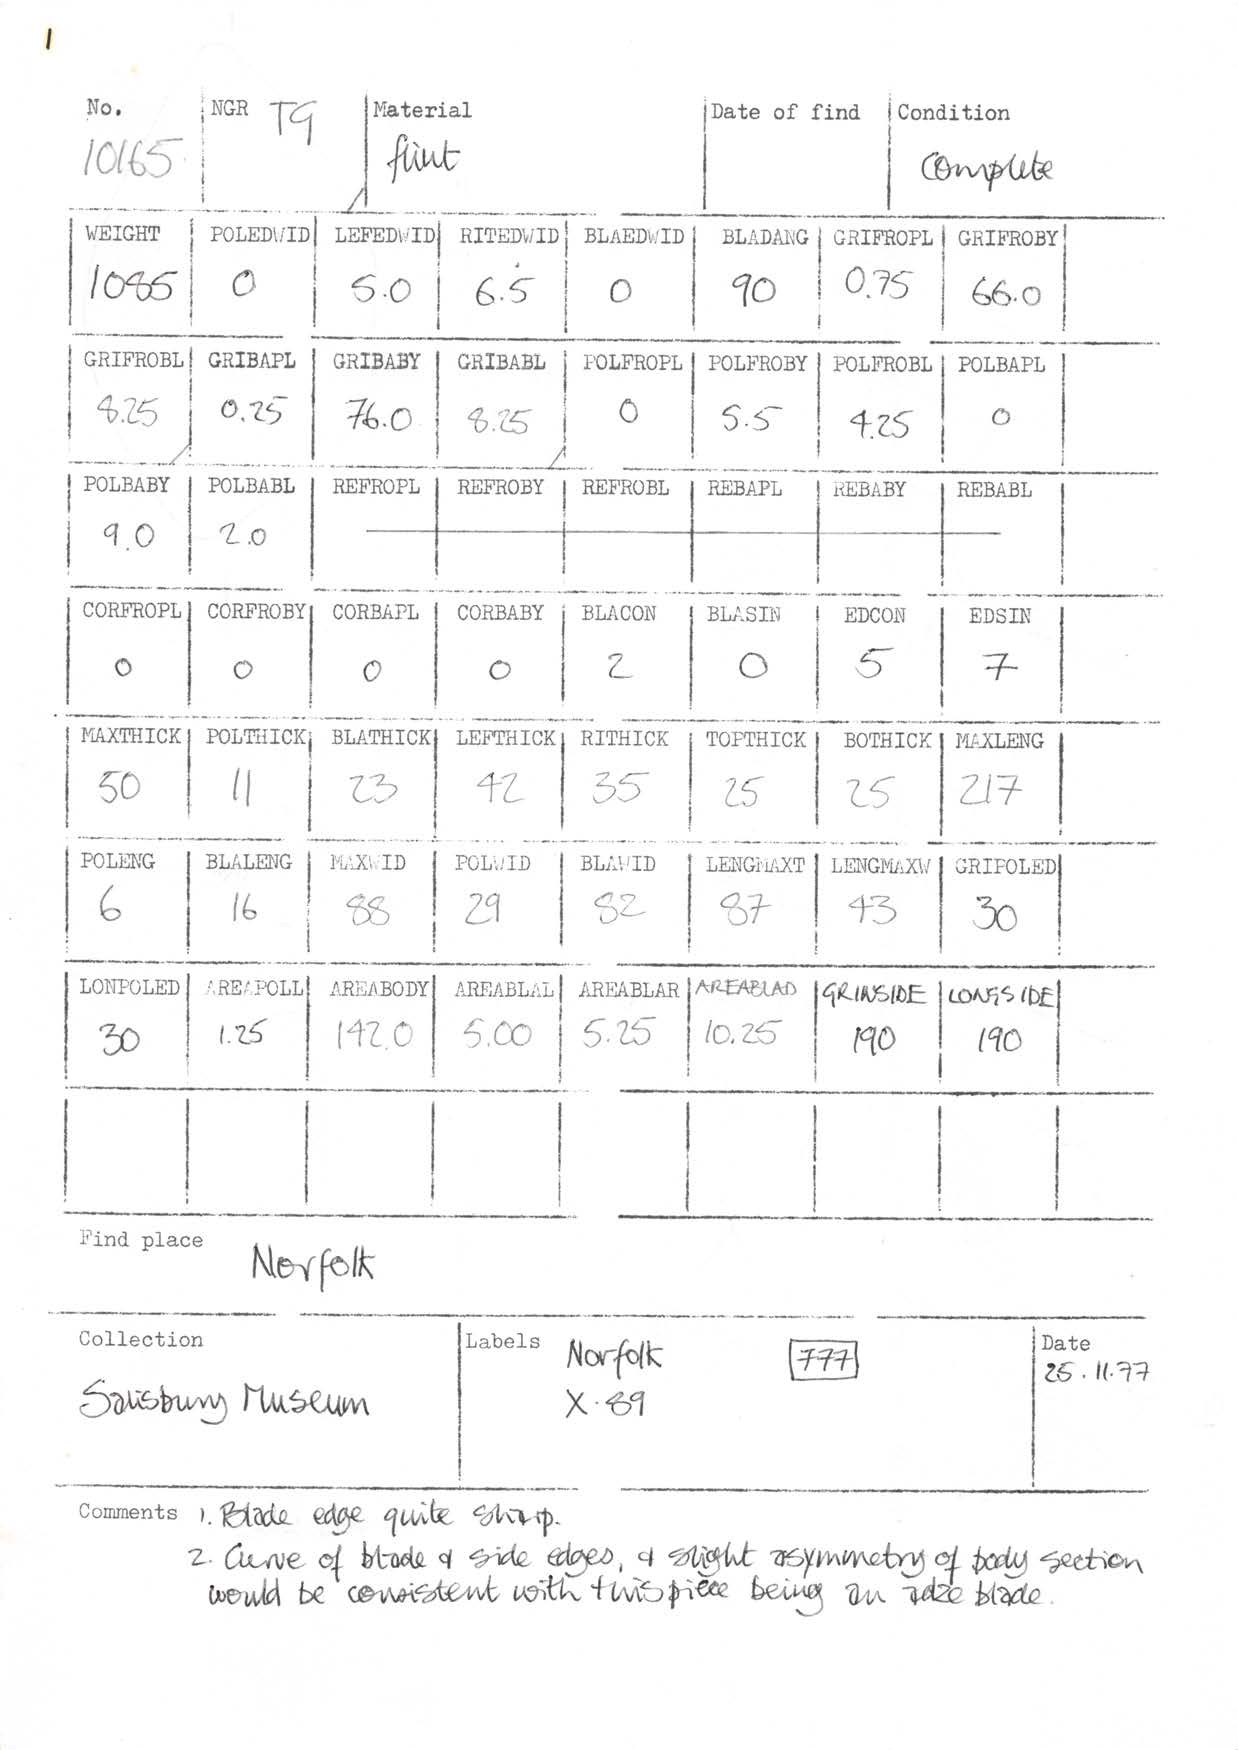 1
No. NGR TG Material Date of find Condition
10165 flint Complete
WEIGHT POLEDWID LEFEDWID RITEDWID BLAEDWID BLADANG GRIFROPL GRIFROBY
1085 0 5.0 6.5 0 90 0.75 66.0
GRIFROBL GRIBAPL GRIBABY GRIBABL POLFROPL POLFROBY POLFROBL POLBAPL
8.25 0.25 76.0 8.25 0 5.5 4.25 0
POLBABY POLBABL REFROPL REFROBY REFROBL REBAPL REBABY REBABL
9.0 2.0
CORFROPL CORFROBY CORBAPL CORBABY BLACON BLASIN EDCON EDSIN
0 0 0 0 2 0 5 7
MAXTHICK POLTHICK BLATHICK LEFTHICK RITHICK TOPTHICK BOTHICK MAXLENG
50 11 23 42 35 25 25 217
POLENG BLALENG MAXWID POLWID BLAWID LENGMAXT LENGMAXW GRIPOLED
6 16 88 29 82 87 43 30
LONPOLED AREAPOLL AREABODY AREABLAL AREABLAR AREABLAD GRINSIDE LONGSIDE
30 1.25 142.0 5.00 5.25 10.25 190 190
Find place Norfolk
Collection Labels Norfolk 777 Date
Salisbury Museum X.89 25.11.77
Comments 1. Blade edge quite sharp.
2. Curve of blade & side edges, & slight asymmetry of body section
would be consistent with this piece being an adze blade.